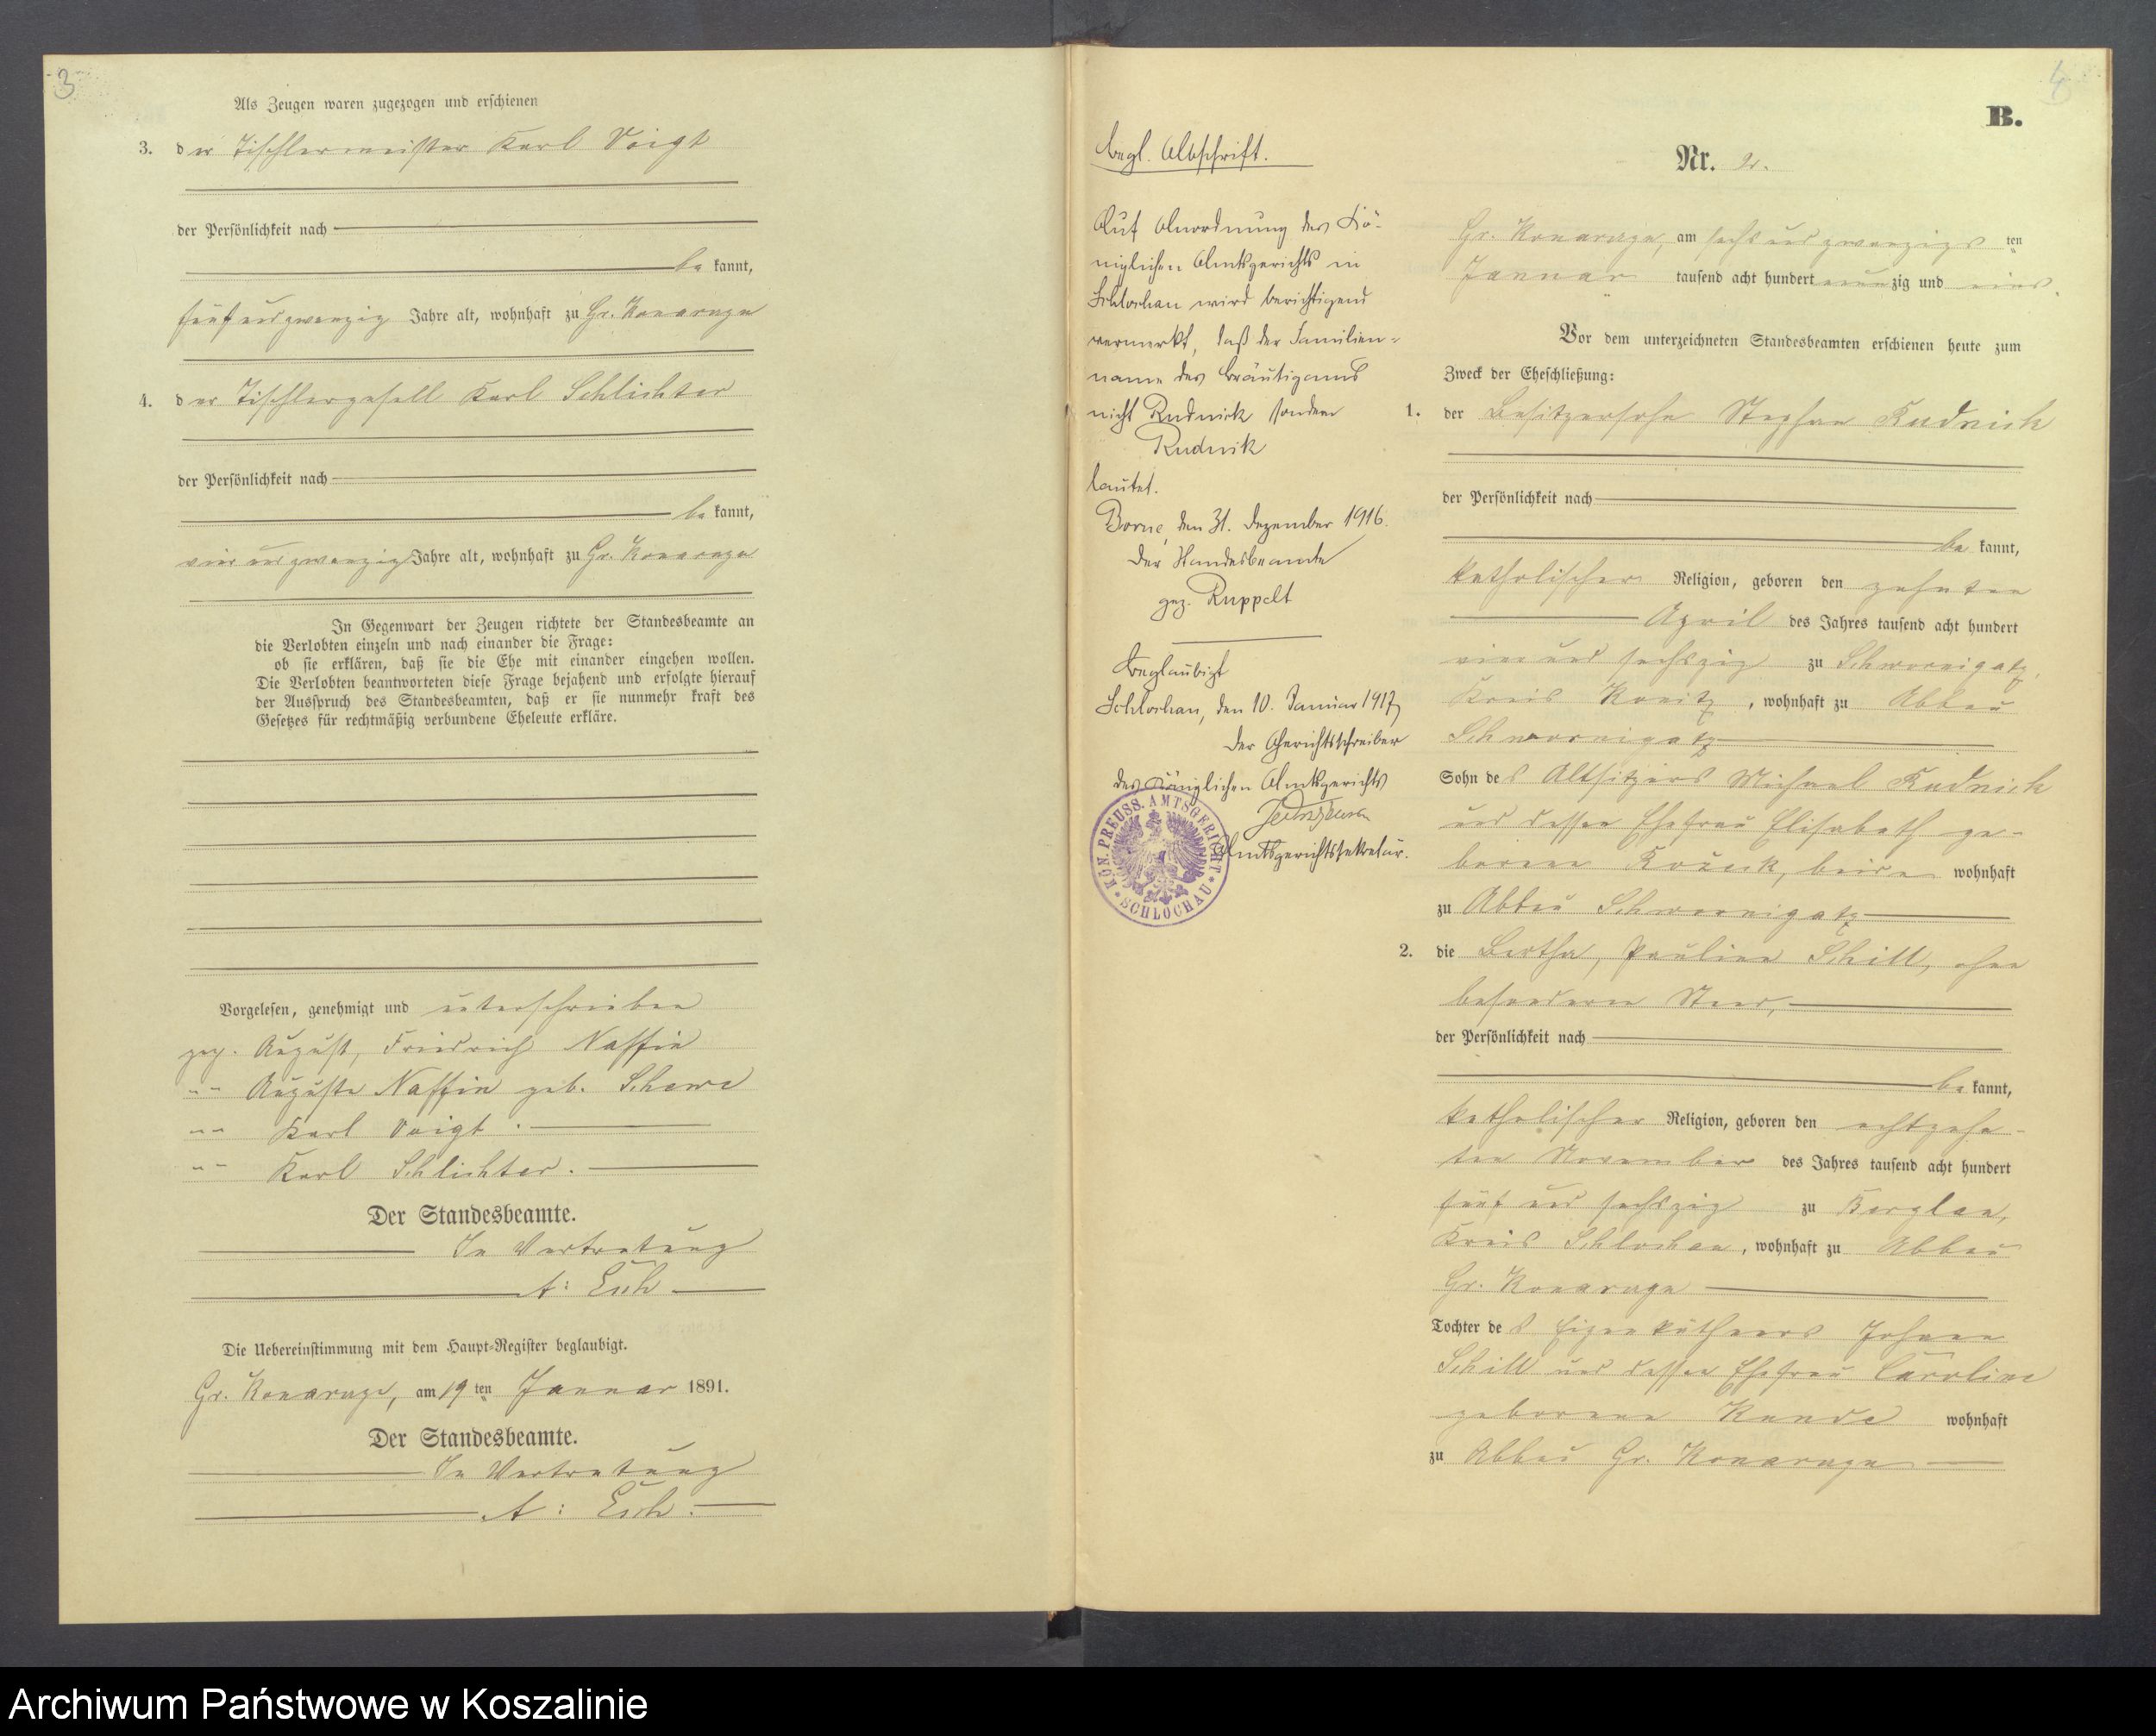 3
Als Zeugen waren zugezogen und erschienen
3. der Tischlermeister Karl Voigt
der Persönlichkeit nach
bekannt,
fünf und zwanzig Jahre alt, wohnhaft zu Gr. Konarczyn
4. der Tischlergesell Karl Schlichter
der Persönlichkeit nach
bekannt,
vier und zwanzig Jahre alt, wohnhaft zu Gr. Konarczyn
In Gegenwart der Zeugen richtete der Standesbeamte an
die Verlobten einzeln und nach einander die Frage:
ob sie erklären, daß sie die Ehe mit einander eingehen wollen.
Die Verlobten beantworteten diese Frage bejahend und erfolgte hierauf
der Ausspruch des Standesbeamten, daß er sie nunmehr kraft des
Gesetzes für rechtmäßig verbundene Eheleute erkläre.
Vorgelesen, genehmigt und unterschrieben
gez. August, Friedrich Naffin
"-" Auguste Naffin geb. Schewe
"-" Karl Voigt.
"-" Karl Schlichter.
Der Standesbeamte.
In Vertretung
A: Esch
Die Uebereinstimmung mit dem Haupt-Register beglaubigt.
Gr. Konarczyn, am 19ten Januar 1891.
Der Standesbeamte.
In Vertretung
A: Esch.
4
B.
Begl. Abschrift.
Auf Anordnung des Kö-
niglichen Amtsgerichts in
Schlochau wird berichtigend
vermerkt, daß der Familien-
name des Bräutigams
nicht Rudnick sondern
Rudnik
lautet.
Borne, den 31. Dezember 1916.
Der Standesbeamte
gez. Ruppelt
Beglaubigt
Schlochau, den 10. Januar 1917
Der Gerichtsschreiber
des Königlichen Amtsgerichts
Amtsgerichtssekretär.
KÖN. PREUSS. AMTSGERICHT * SCHLOCHAU *
Nr. 2.
Gr. Konarczyn, am sechs und zwanzigsten
Januar tausend acht hundert neunzig und eins.
Vor dem unterzeichneten Standesbeamten erschienen heute zum
Zweck der Eheschließung:
1. der Besitzersohn Stephan Rudnick
der Persönlichkeit nach
bekannt,
katholischer Religion, geboren den zehnten
April des Jahres tausend acht hundert
vier und sechszig zu Schwornigatz,
Kreis Konitz, wohnhaft zu Abbau
Schwornigatz
Sohn des Altsitzers Michael Rudnick
und dessen Ehefrau Elisabeth ge-
borene beide wohnhaft
zu Abbau Schwornigatz
2. die Bertha, Pauline Schill, ohne
besonderen Stand,
der Persönlichkeit nach
bekannt,
katholischer Religion, geboren den achtzehn-
ten November des Jahres tausend acht hundert
fünf und sechszig zu Berglau,
Kreis Schlochau, wohnhaft zu Abbau
Gr. Konarczyn
Tochter des Eigenkäthners Johann
Schill und dessen Ehefrau Caroline
geborene Kunde wohnhaft
zu Abbau Gr. Konarczyn
Archiwum Państwowe w Koszalinie